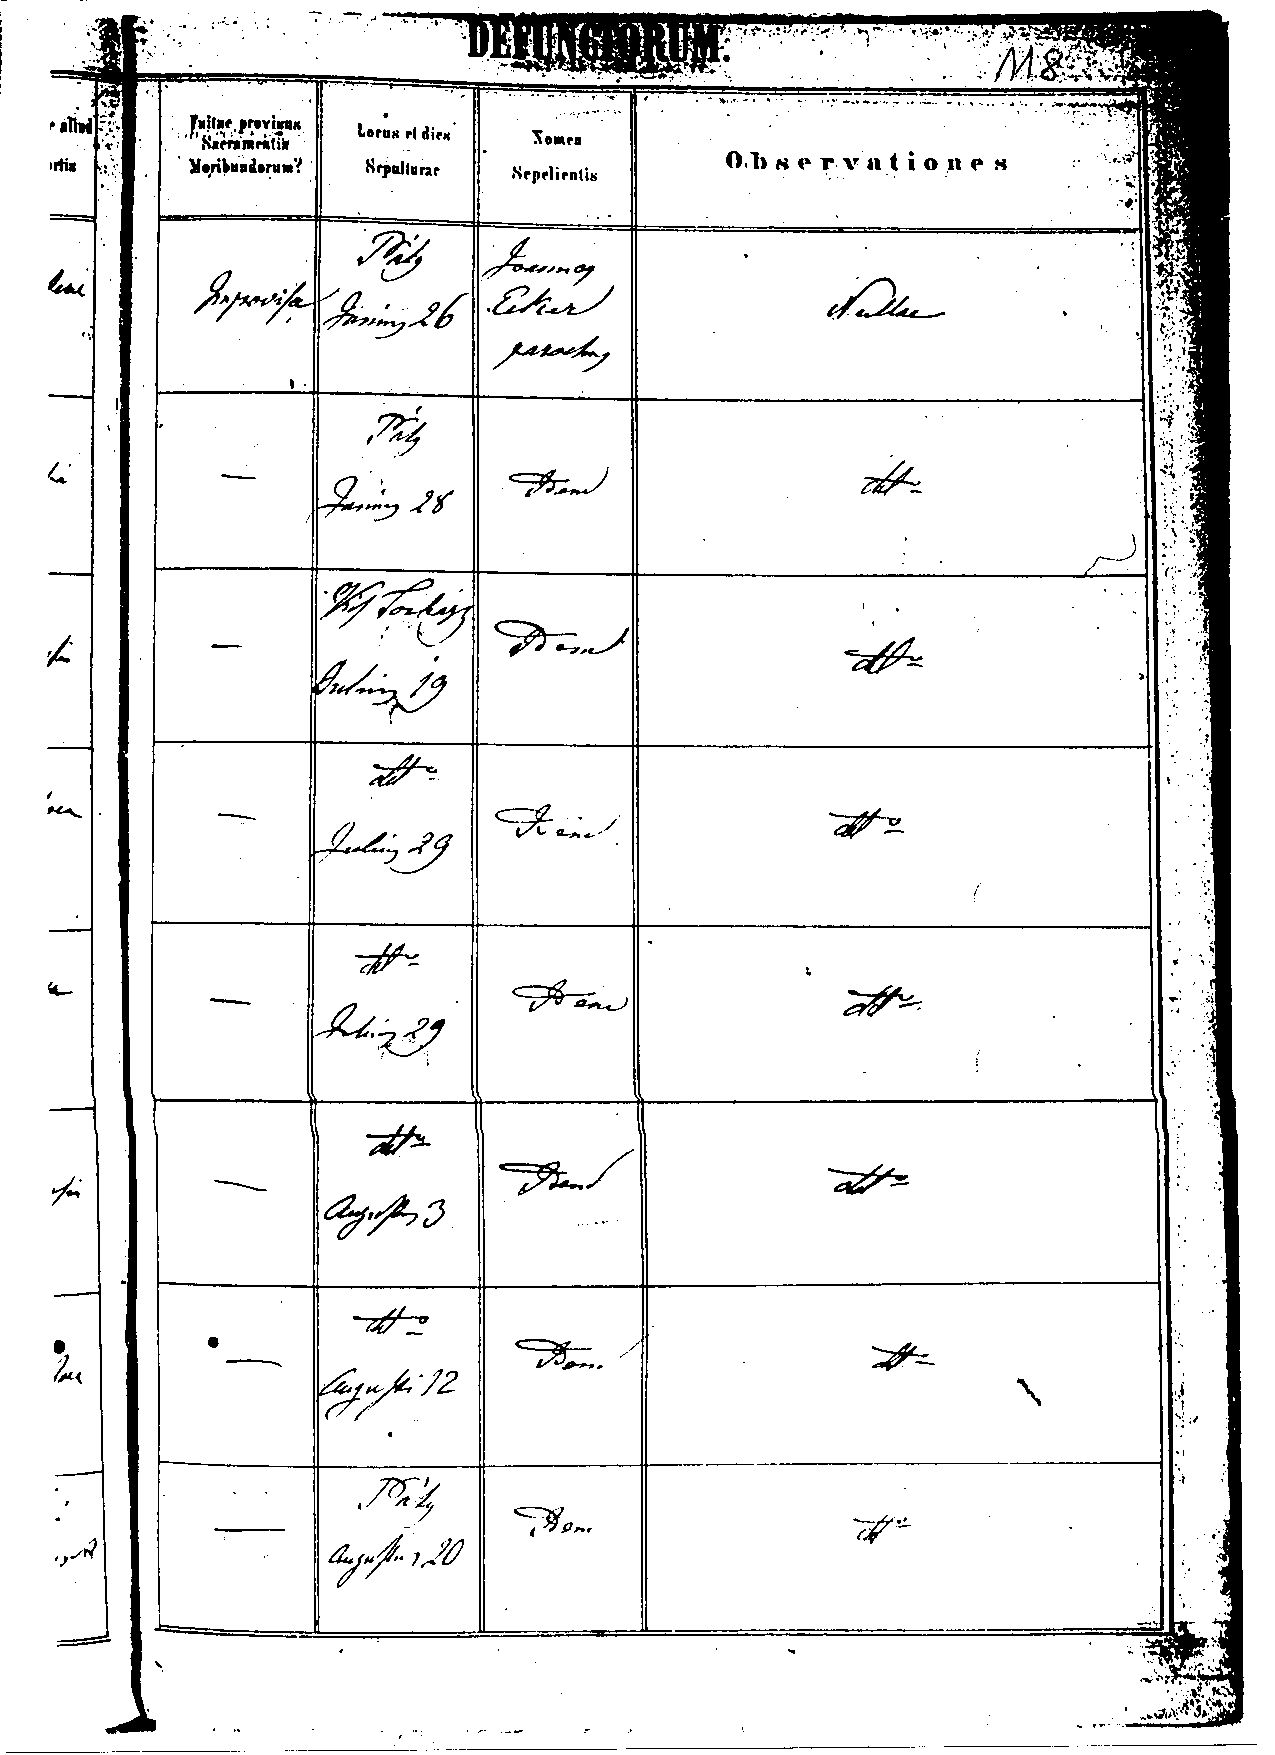 DEFUNCTORUM.
M8
Fuitne provisus
Sacramentis
Moribundorum?
Locus et dies
Sepulturae
Nomen
Sepelientis
Observationes
Improvisa
Páty
Junius 26
Joannes
Eker
parochus
Nullae
—
Páty
Junius 28
Idem
dtto
—
Kis Torbágy
Julius 19
Idem
dtto
—
dtto
Julius 29
Idem
dtto
—
dtto
Julius 29
Idem
dtto
—
dtto
Augustus 3
Idem
dtto
—
dtto
Augusti 12
Idem
dtto
—
Páty
Augustus 20
Idem
dtto